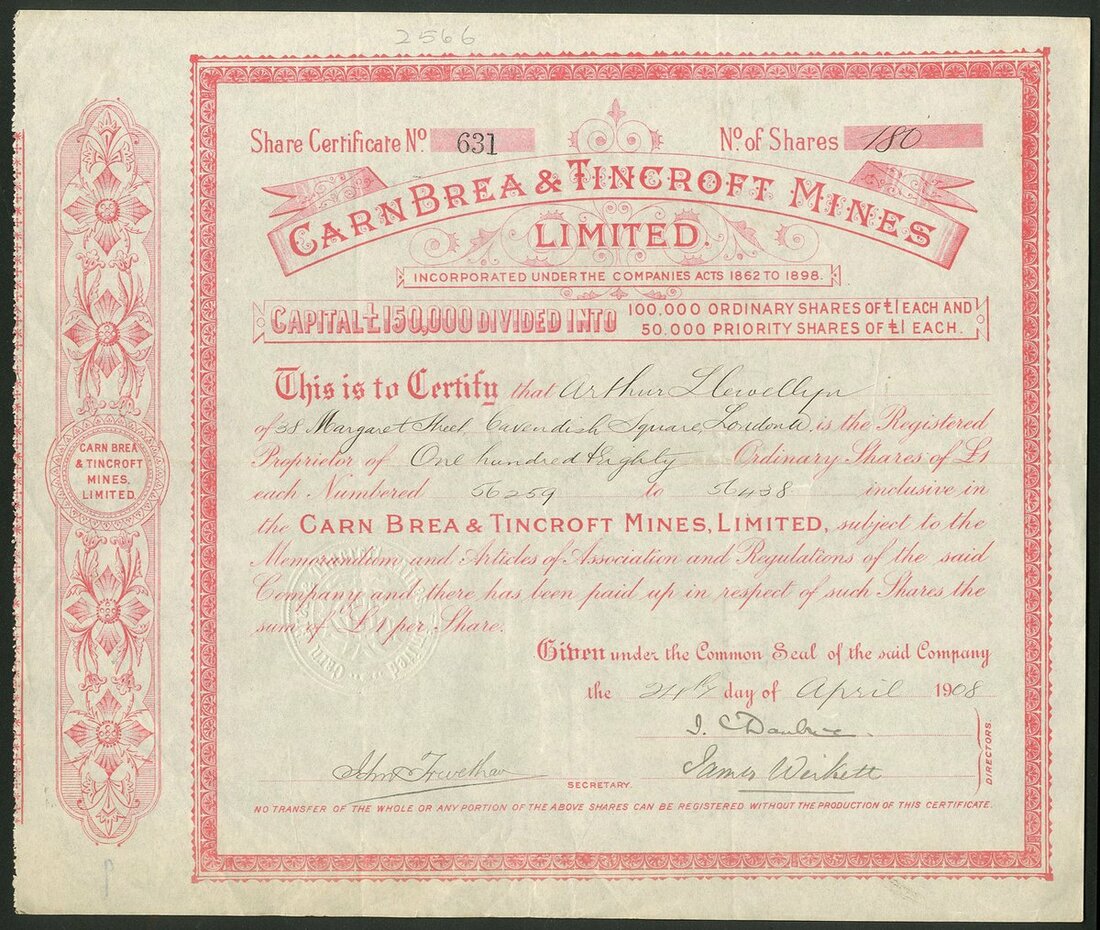 2566
Share Certificate No. 631
No. of Shares 180
CARN BREA & TINCROFT MINES
LIMITED.
INCORPORATED UNDER THE COMPANIES ACTS 1862 TO 1898.
CAPITAL £150,000 DIVIDED INTO
100,000 ORDINARY SHARES OF £1 EACH AND
50,000 PRIORITY SHARES OF £1 EACH.
This is to Certify that Arthur Llewellyn
of 38 Margaret Street, Cavendish Square, London W. is the Registered
Proprietor of One hundred & Eighty Ordinary Shares of £1
each Numbered 56259 to 56438 inclusive in
the CARN BREA & TINCROFT MINES, LIMITED, subject to the
Memorandum and Articles of Association and Regulations of the said
Company and there has been paid up in respect of such Shares the
sum of £1 per Share.
Given under the Common Seal of the said Company
the 24th day of April 1908
James Wickett
DIRECTORS
John
SECRETARY.
NO TRANSFER OF THE WHOLE OR ANY PORTION OF THE ABOVE SHARES CAN BE REGISTERED WITHOUT THE PRODUCTION OF THIS CERTIFICATE.
CARN BREA
& TINCROFT
MINES,
LIMITED.